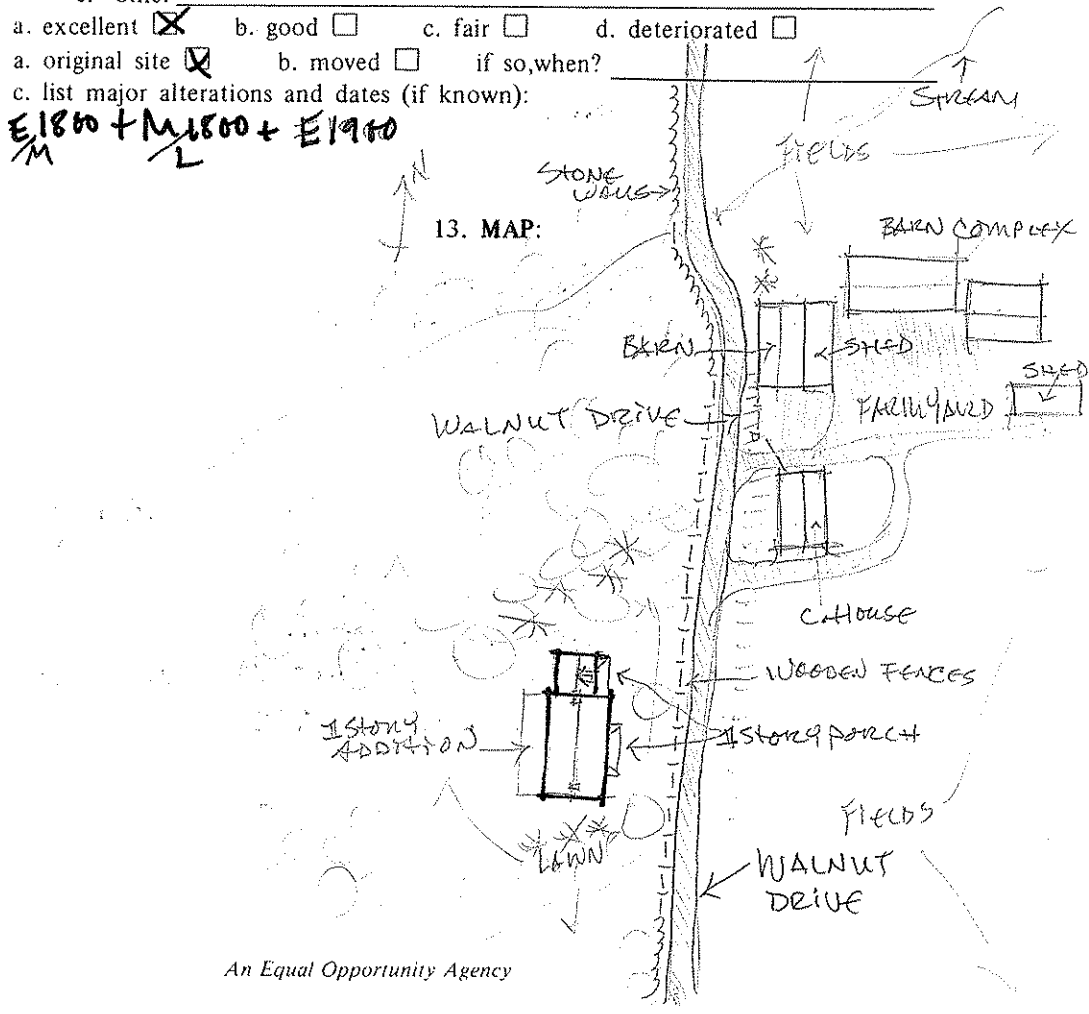 a. excellent ☒ b. good ☐ c. fair ☐ d. deteriorated ☐
a. original site ☒ b. moved ☐ if so,when?
c. list major alterations and dates (if known):
E 1800 + M 1800 + E 1900
/M /L
N
13. MAP:
STREAM
FIELDS
STONE
WALLS
BARN COMPLEX
BARN
SHED
SHED
WALNUT DRIVE
FARMYARD
C. HOUSE
WOODEN FENCES
1 STORY
ADDITION
1 STORY PORCH
FIELDS
LAWN
WALNUT
DRIVE
An Equal Opportunity Agency